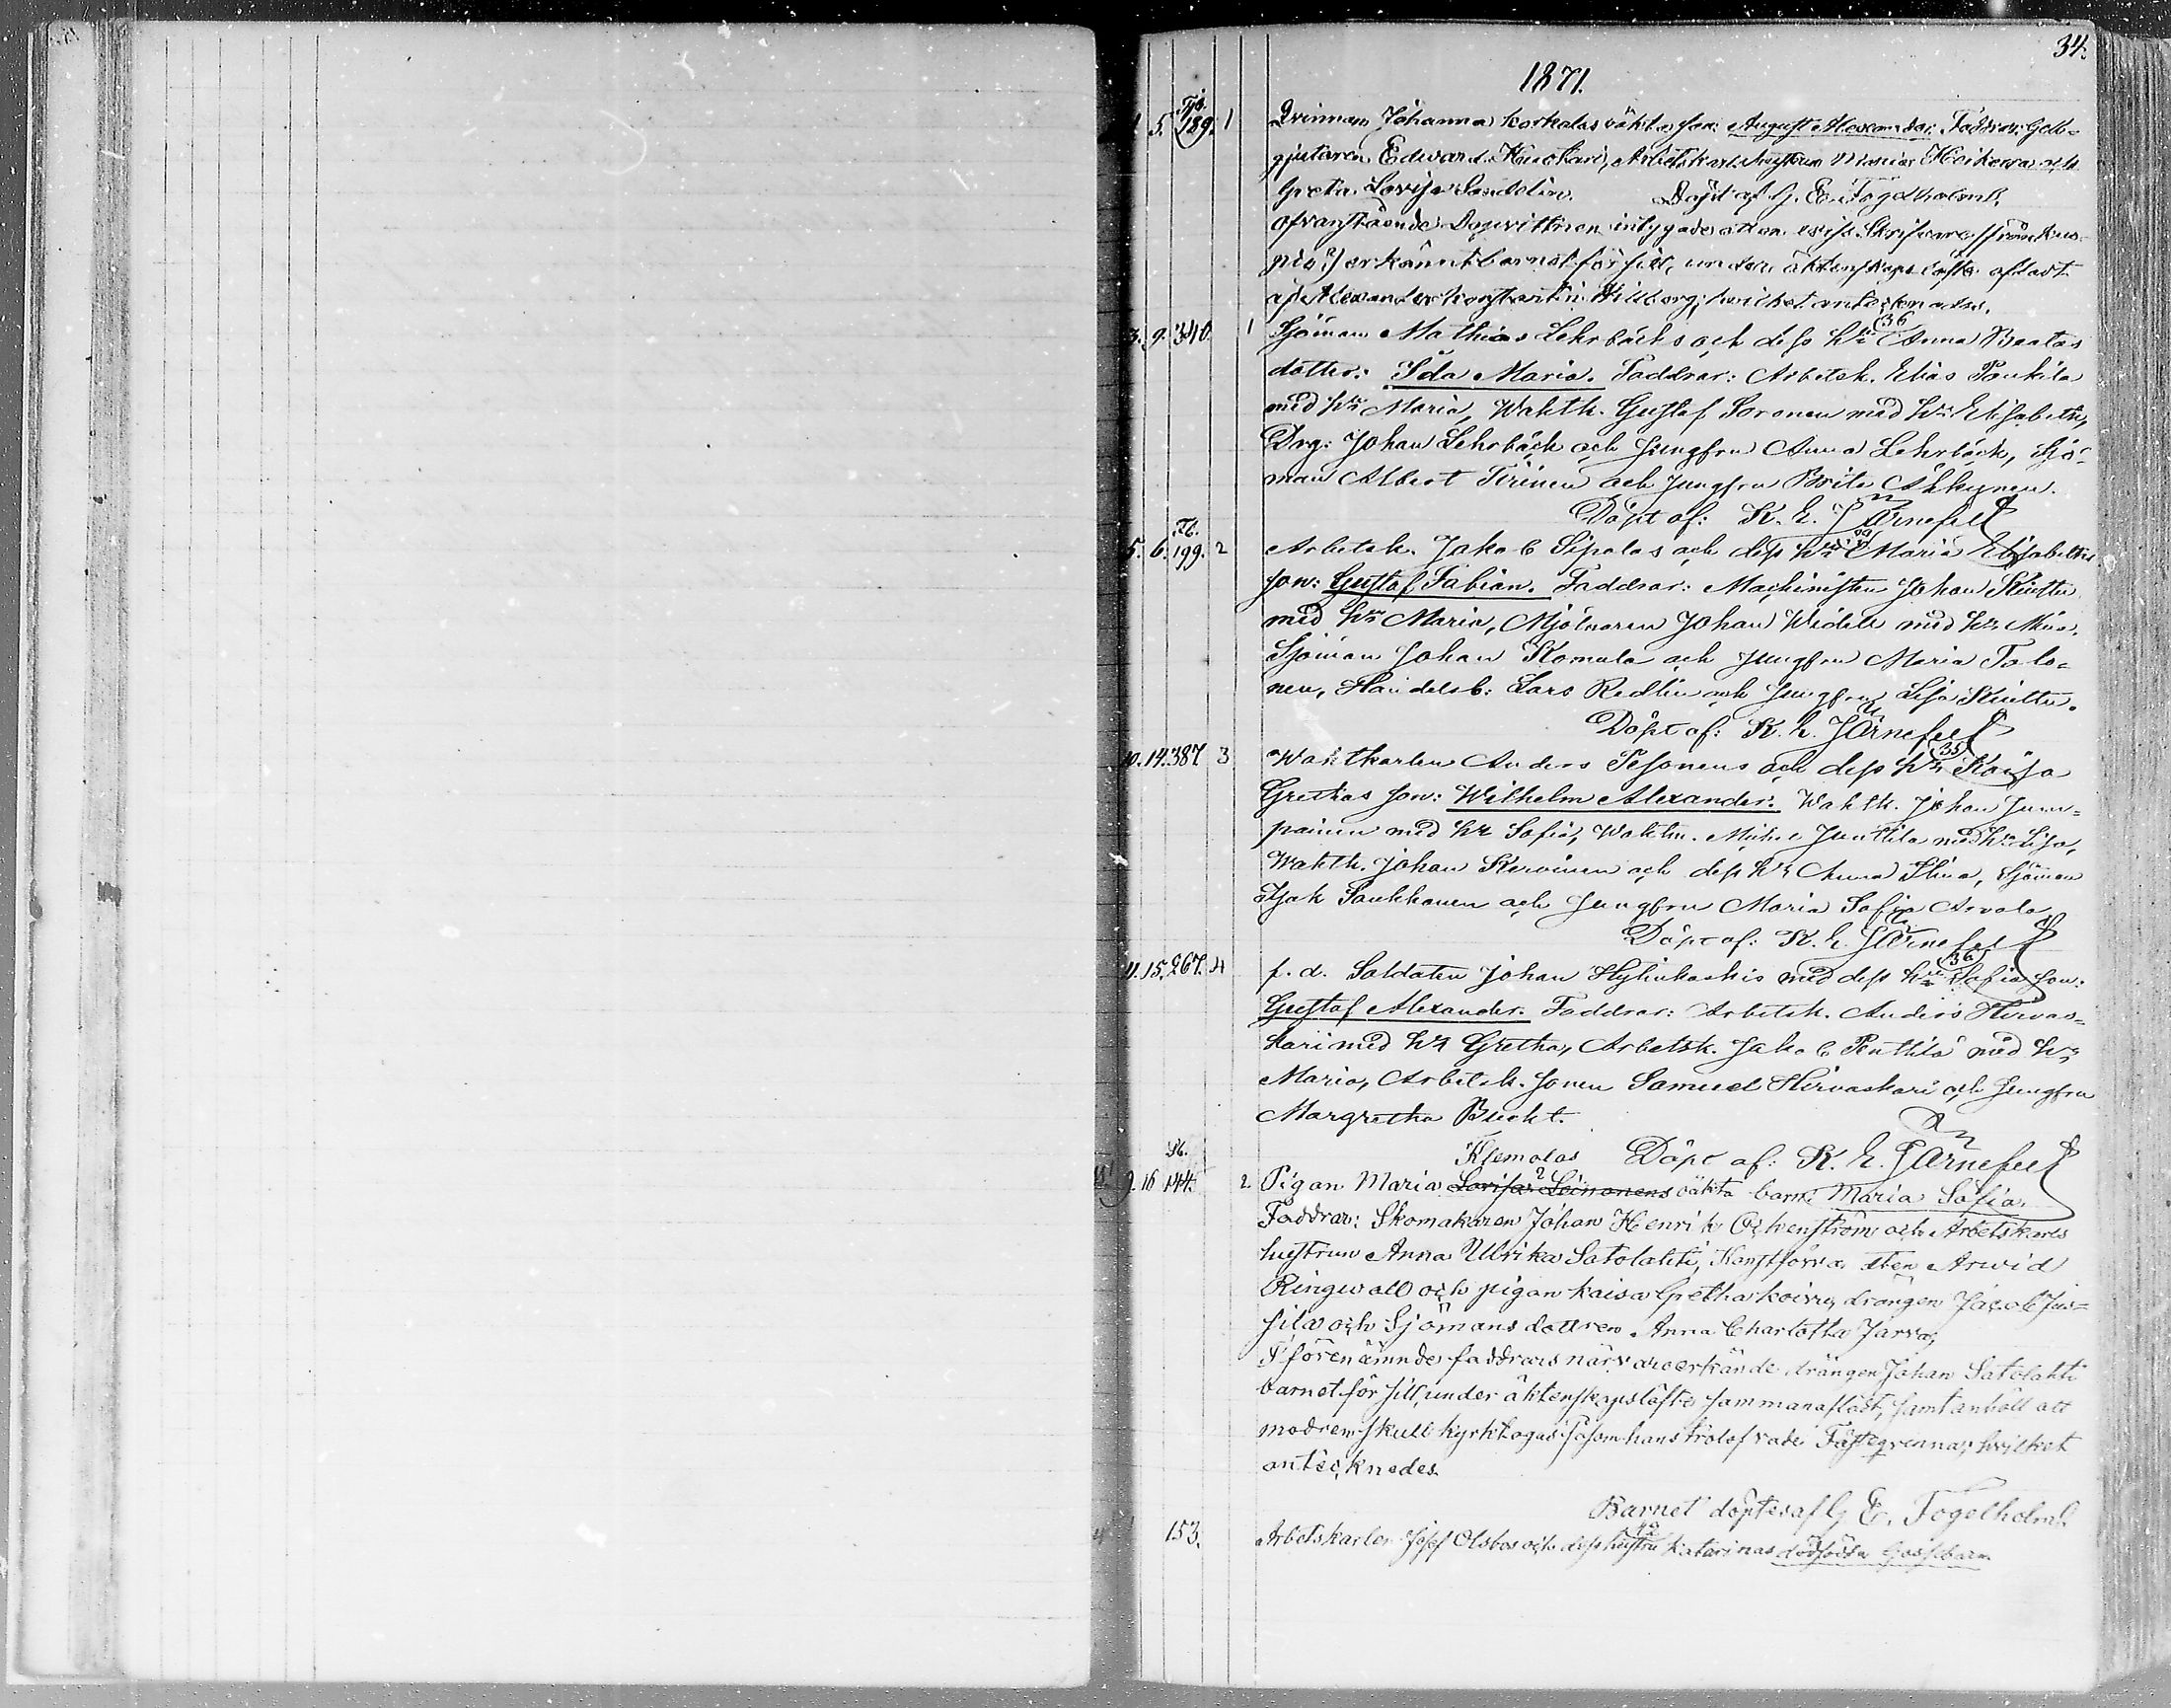 34.
1871.
Tjb.
1. 5. 189. 1 Qvinnan Johanna Korkalas oäkta son: August Alexander. Faddrar: Gelb-
gjutaren Edvard Kuokari, Arbetskarlshustrun Maria Heikerva och
Greta Lovisa Sandelin. Döpt af G. E. Fogelholm.
Ofvanstående Dopvittnen intygade att en viss Skrifvare (från Kuo-
pio?) erkännt barnet för sitt, under äktenskaps löfte afladt
af Alexander Konstantin Hillborg; hvilket antecknades.
3. 9. 340. 1 Sjöman Mathias Lehrbäcks och dess h:u (36 Anna Beatas
dotter: Ida Maria. Faddrar: Arbetsk. Elias Paukila
med h:u Maria, Wahtk. Gustaf Soronen med h:u Elisabeth,
Drg: Johan Lehrbäck och Jungfru Anna Lehrbäck, Sjö-
man Albert Tirinen och Jungfru Brita
Döpt af: K. E. Järnefelt
Tb.
5. 6. 199. 2 Arbetsk. Jakob Sipolas och dess h:u Maria Elisabeths
son: Gustaf Fabian. Faddrar: Machinisten Johan Kinttu
med h:u Maria, Mjölnaren Johan Widell med h:u
Sjöman Johan Komula och Jungfru Maria Talo-
nen, Handelsb: Lars Redlin och Jungfru Lisa Kinttu.
Döpt af: K. E. Järnefelt
10. 14. 387. 3 Wahtkarlen Anders Pesonens och dess h:u (35) Kaisa
Grethas son: Wilhelm Alexander. Wahtk. Johan Jum-
painen med h:u Sofia, Wahtm. Michel Junttila med h:u Lisa,
Wahtk. Johan Kervinen och dess h:u Anna Stina, Sjöman
Isak Paukkonen och Jungfru Maria Sofia Arvola
Döpt af: K. E. Järnefelt
11. 15. 267. 4 f. d. Soldaten Johan med dess h:u (36) Sofia son:
Gustaf Alexander. Faddrar: Arbetsk. Anders Hirvas-
kari med h:u Gretha, Arbetsk. Jakob Penttilä med h:u
Maria, Arbetsk. sonen Samuel Hirvaskari och Jungfru
Margretha Bucht.
Klemolas Döpt af: K. E. Järnefelt
Sb.
9. 16 144. 2. Pigan Maria Lovisa Leinonens oäkta barn: Maria Sofia.
Faddrar: Skomakaren Johan Henrik Öckenström och Arbetskarls
hustrun Anna Ulrika Satolahti, Konstförvandten Arvid
Ringwall och pigan Kaisa Gretha Koivu, drängen Jacob Jus-
sila och Sjömansdottren Anna Charlotta Järva,
I förenämnde faddrars närvaro erkände drängen Johan Satolahti
barnet för sitt, under äktenskapslöfte sammanaflat, samt anhöll att
modren skull kyrktagas såsom hans trolofvade Fästeqvinna; hvilket
antecknedes.
Barnet döptes af G. E. Fogelholm.
153. Arbetskarlen Josef Olsbos och dess hustru Katarinas dödfödda Gossebarn